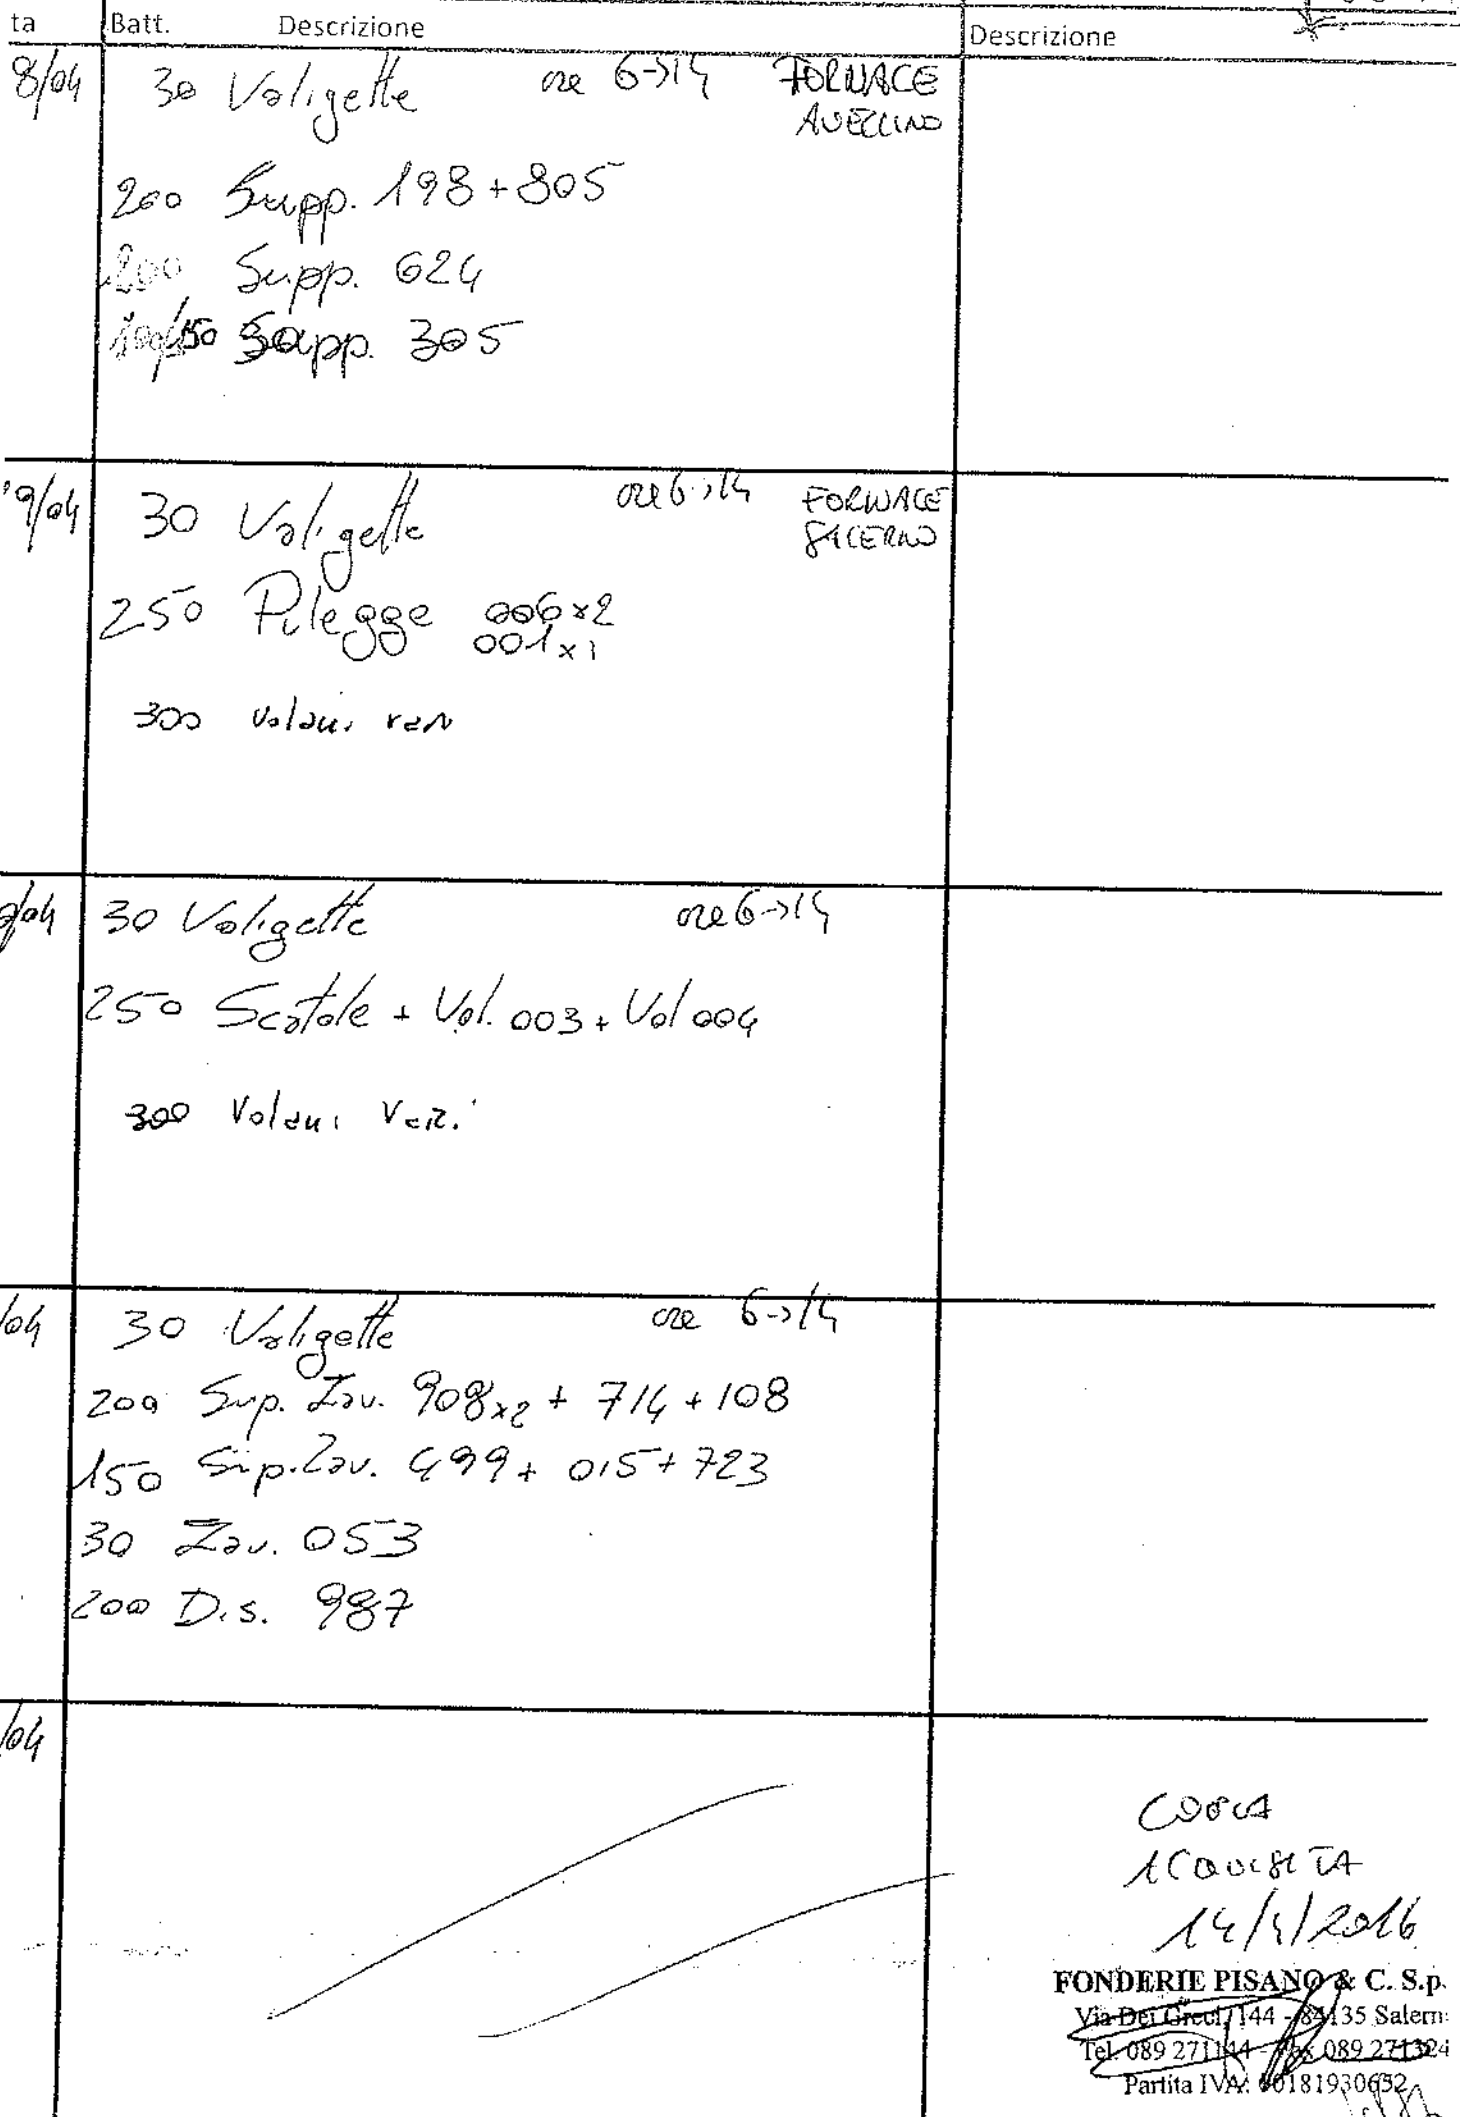 ta Batt. Descrizione Descrizione
8/04 30 Valigette ore 6->14 FORNACE
AVELLINO
200 Supp. 198+805
200 Supp. 624
150 Supp. 305
9/04 30 Valigette ore 6->14 FORNACE
SALERNO
250 Pulegge 006x2
001x1
300 Volani vari
/04 30 Valigette ore 6->14
250 Scatole + Vol. 003 + Vol 004
300 Volani Vari
/04 30 Valigette ore 6->14
200 Sup. Zav. 908x2 + 714 + 108
150 Sup. Zav. 499 + 015 + 723
30 Zav. 053
200 Dis. 987
/04
COPIA
ACQUISITA
14/4/2016
FONDERIE PISANO & C. S.p.
Via Dei Greci, 144 - 84135 Salern
Tel. 089 271144 - Fax 089 271324
Partita IVA: 00181930652